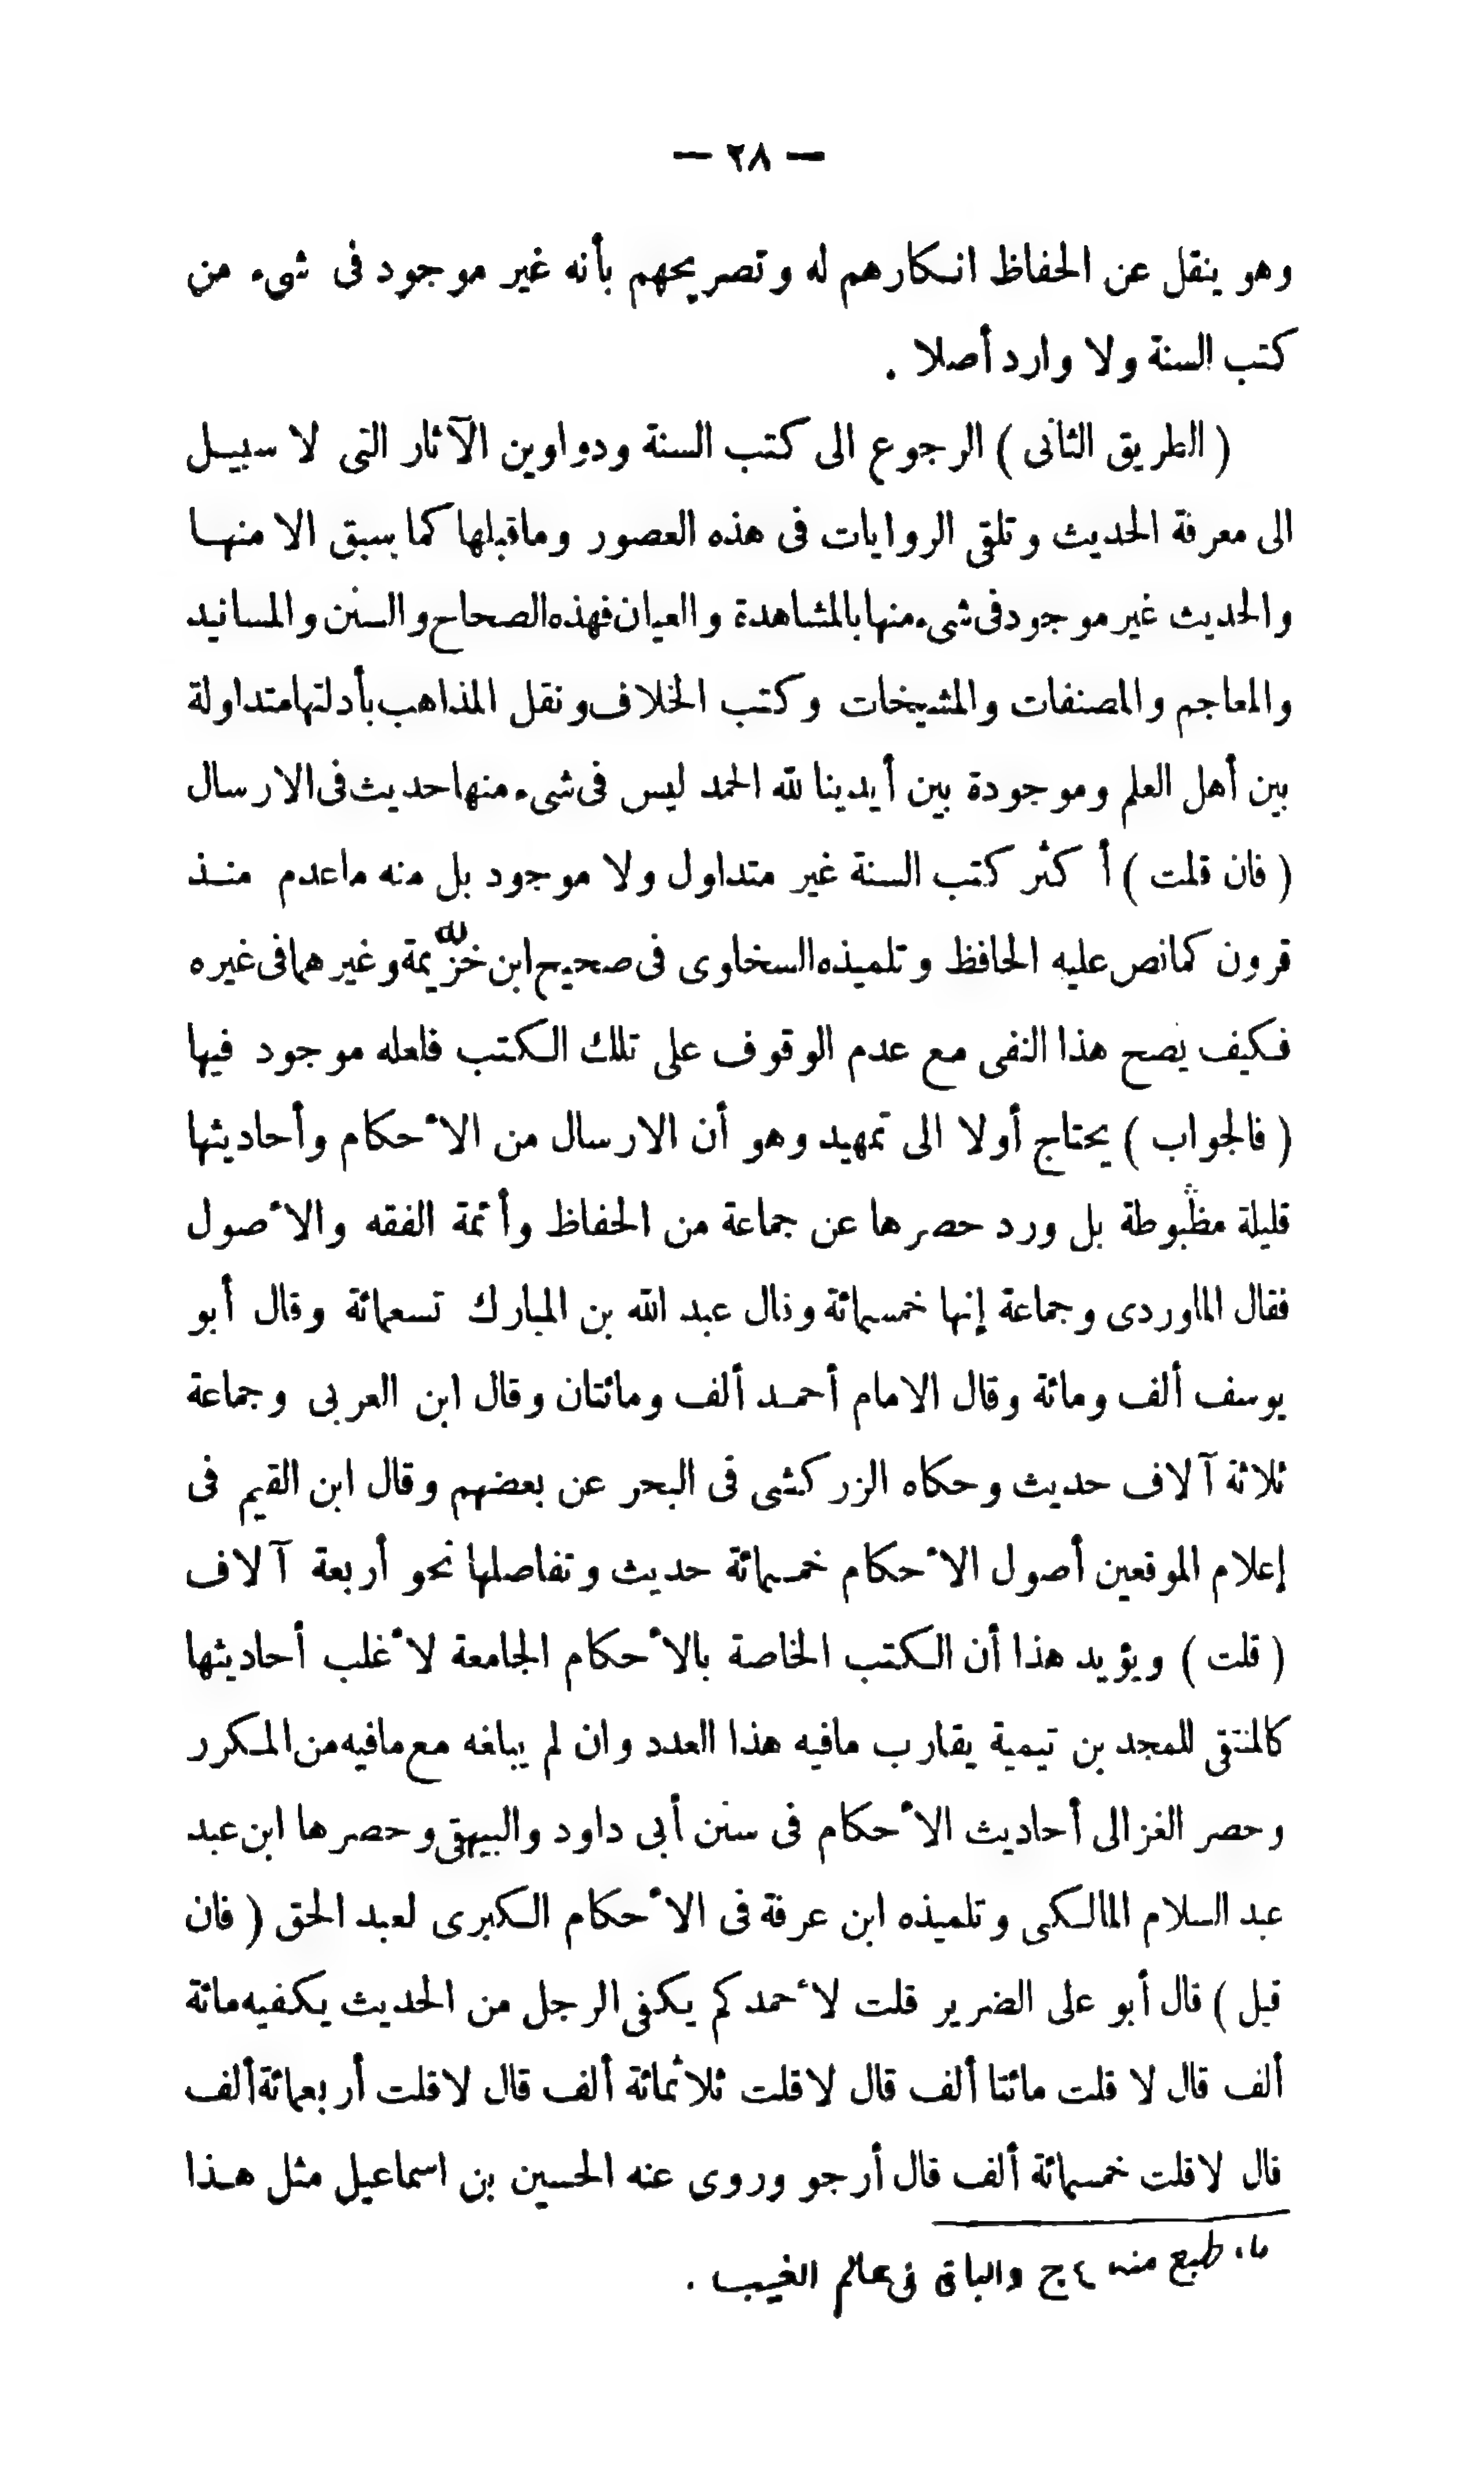 — ٢٨ —
وهو ينقل عن الحفاظ انكارهم له وتصريحهم بأنه غير موجود فى شىء من
كتب السنة ولا وارد أصلا .
( الطريق الثانى ) الرجوع الى كتب السنة ودواوين الآثار التى لا سبيل
الى معرفة الحديث وتلقى الروايات فى هذه العصور وماقبلها كما سبق الا منها
والحديث غير موجود فى شىء منها بالمشاهدة والعيان فهذه الصحاح والسنن والمسانيد
والمعاجم والمصنفات والمشيخات وكتب الخلاف ونقل المذاهب بأدلتها متداولة
بين أهل العلم وموجودة بين أيدينا لله الحمد ليس فى شىء منها حديث فى الارسال
( فان قلت ) أكثر كتب السنة غير متداول ولا موجود بل منه ماعدم منذ
قرون كمانص عليه الحافظ وتلميذه السخاوى فى صحيح ابن خزيمة وغيرهما فى غيره
فكيف يصح هذا النفى مع عدم الوقوف على تلك الكتب فلعله موجود فيها
( فالجواب ) يحتاج أولا الى تمهيد وهو أن الارسال من الأحكام وأحاديثها
قليلة مظبوطة بل ورد حصرها عن جماعة من الحفاظ وأئمة الفقه والأصول
فقال الماوردى وجماعة إنها خمسمائة وقال عبد الله بن المبارك تسعمائة وقال أبو
يوسف ألف ومائة وقال الامام أحمد ألف ومائتان وقال ابن العربى وجماعة
ثلاثة آلاف حديث وحكاه الزركشى فى البحر عن بعضهم وقال ابن القيم فى
إعلام الموقعين أصول الأحكام خمسمائة حديث وتفاصلها نحو أربعة آلاف
( قلت ) ويؤيد هذا أن الكتب الخاصة بالأحكام الجامعة لأغلب أحاديثها
كالمنتقى للمجد بن تيمية يقارب مافيه هذا العدد وان لم يبلغه مع مافيه من المكرر
وحصر الغزالى أحاديث الأحكام فى سنن أبى داود والبيهقى وحصرها ابن عبد
عبد السلام المالكى وتلميذه ابن عرفة فى الأحكام الكبرى لعبد الحق ( فان
قيل ) قال أبو على الضرير قلت لأحمد كم يكفى الرجل من الحديث يكفيه مائة
ألف قال لا قلت مائتا ألف قال لا قلت ثلاثمائة ألف قال لا قلت أربعمائة ألف
قال لا قلت خمسمائة ألف قال أرجو وروى عنه الحسين بن اسماعيل مثل هذا
طبع منه ٤ج والباقى فى عالم الغيب .